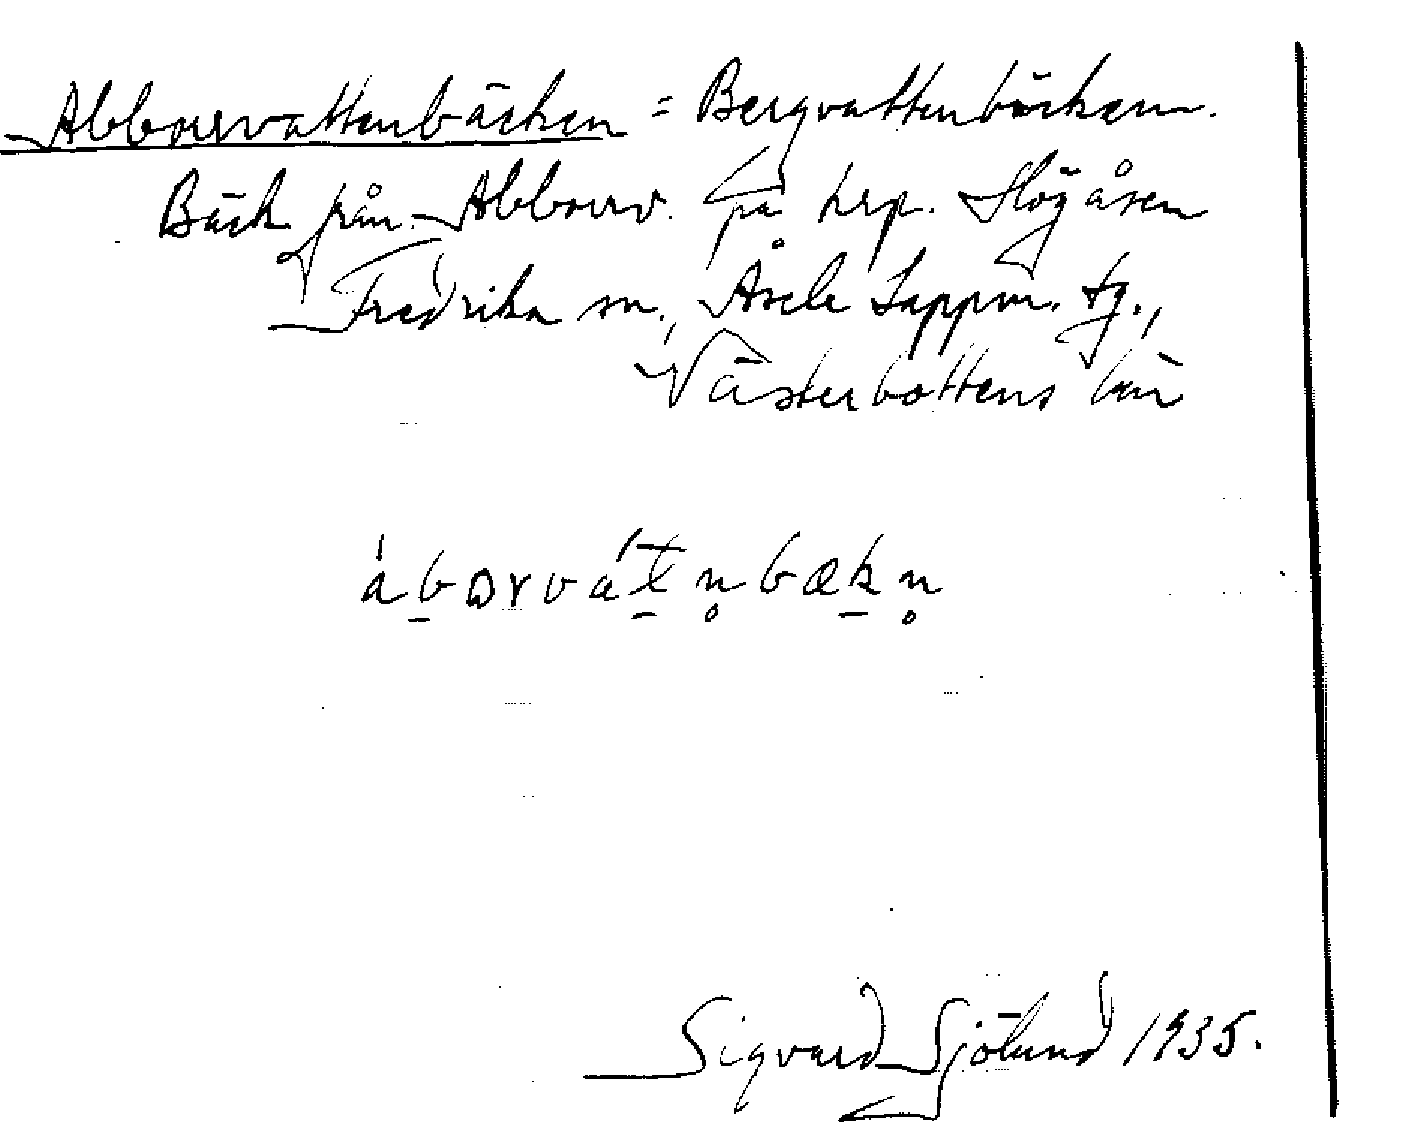 Abborrvattenbäcken = Bergvattenbäcken.
Bäck från Abborrv. på krp. Högåsen
Fredrika sn., Åsele Lappm. tg.,
Västerbottens län
Sigvard Sjölund 1935.